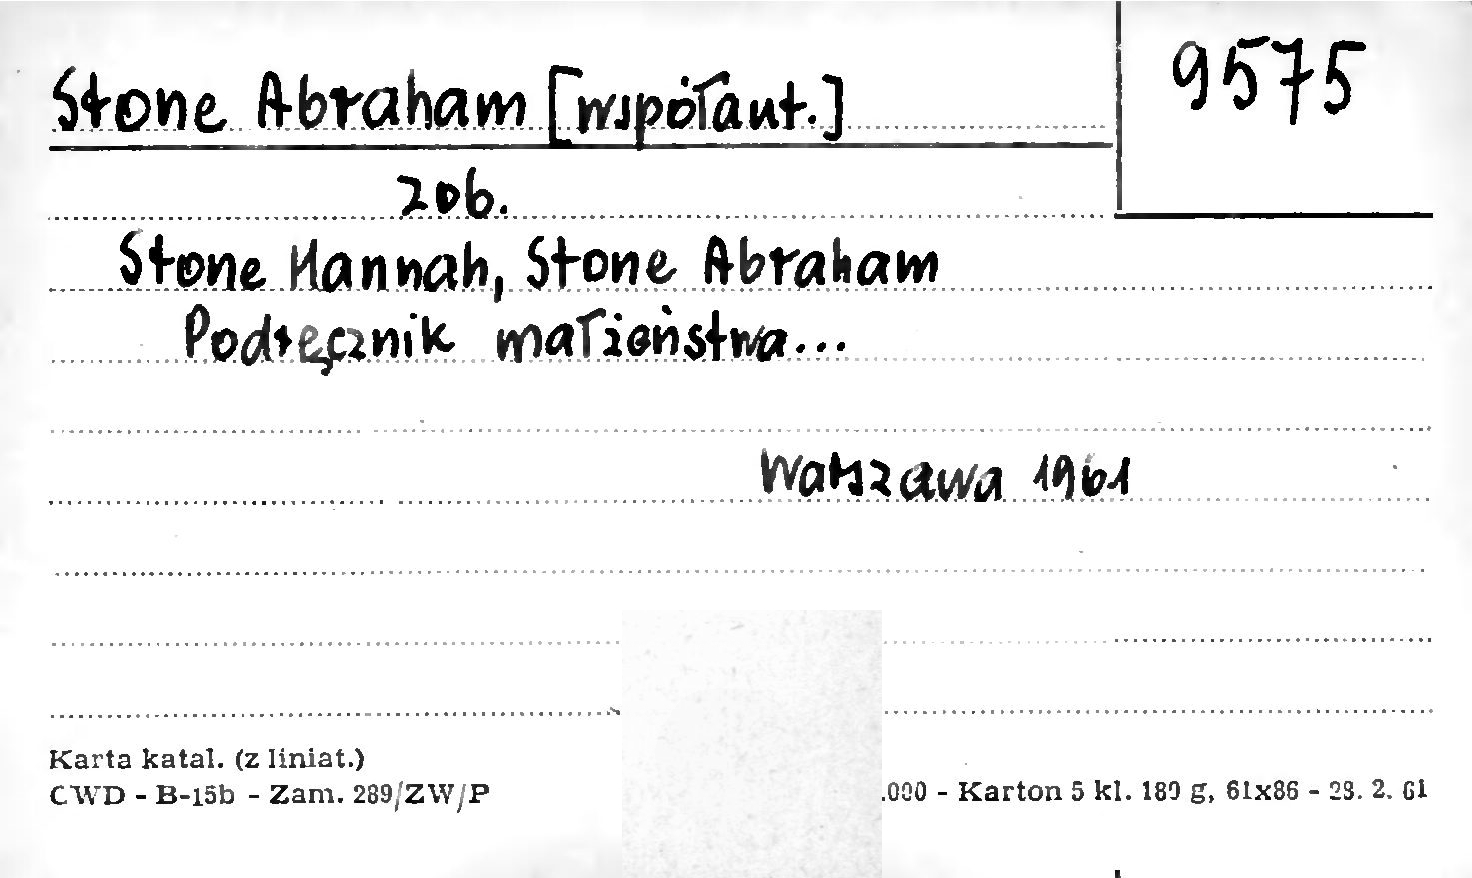 Stone Abraham [współaut.]
9575
zob.
Stone Hannah, Stone Abraham
Podręcznik małżeństwa...
Warszawa 1961
Karta katal. (z liniat.)
CWD - B-15b - Zam. 289/ZW/P
.000 - Karton 5 kl. 180 g, 61x86 - 28. 2. 61